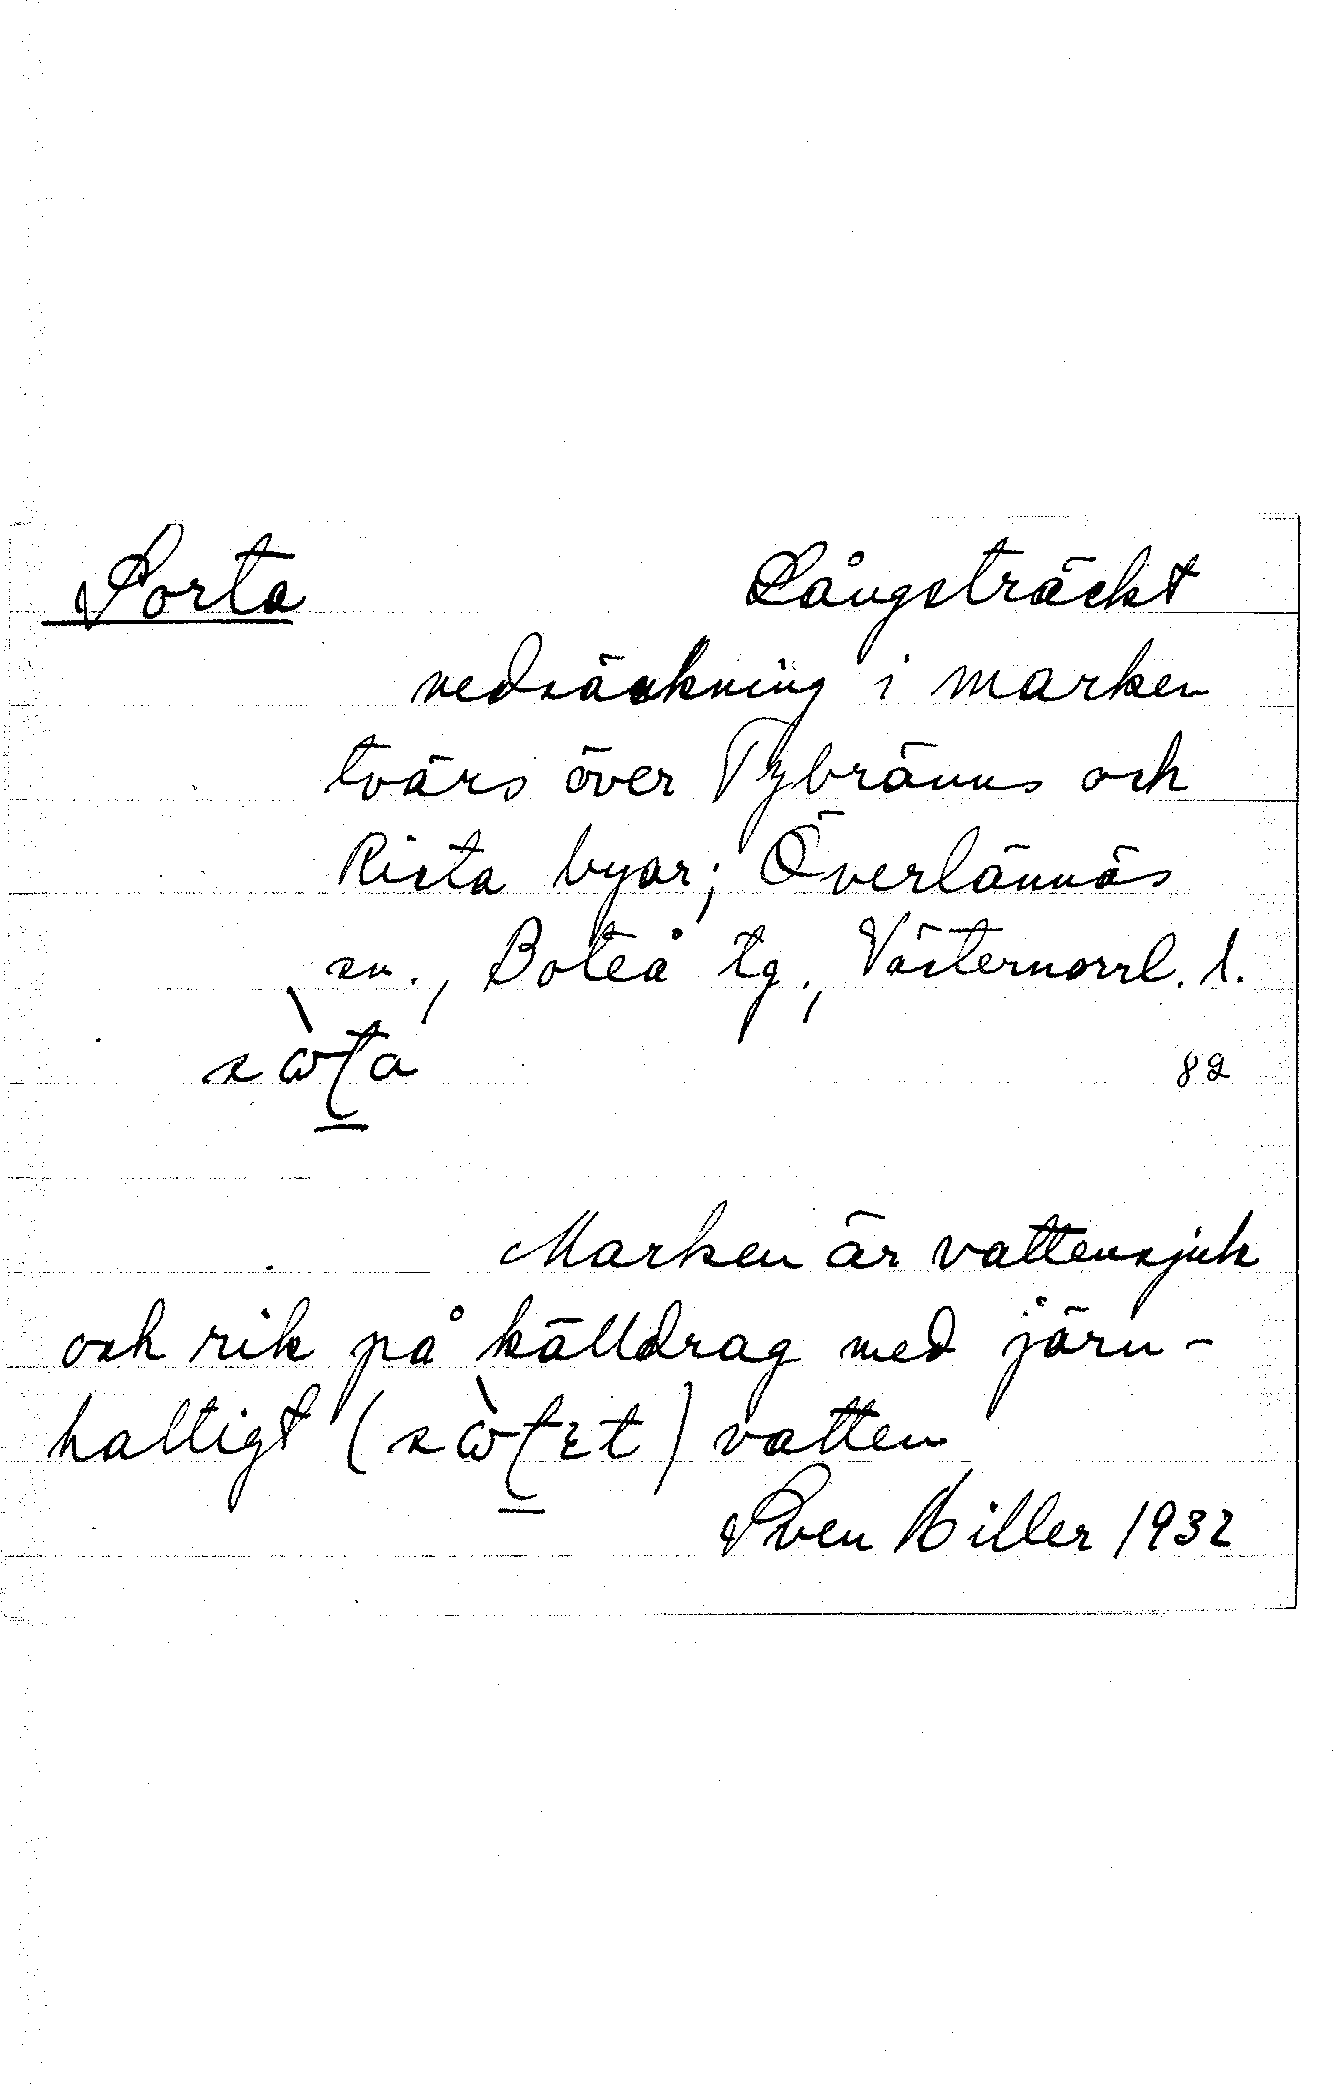 Sorta Långsträckt
nedsänkning i marken
tvärs över Tybränns och
Rista byar; Överlännäs
sn., Boteå tg., Västernorrl. l.
82
Marken är vattensjuk
och rik på källdrag med järn-
haltigt ( ) vatten
Sven Hiller 1932